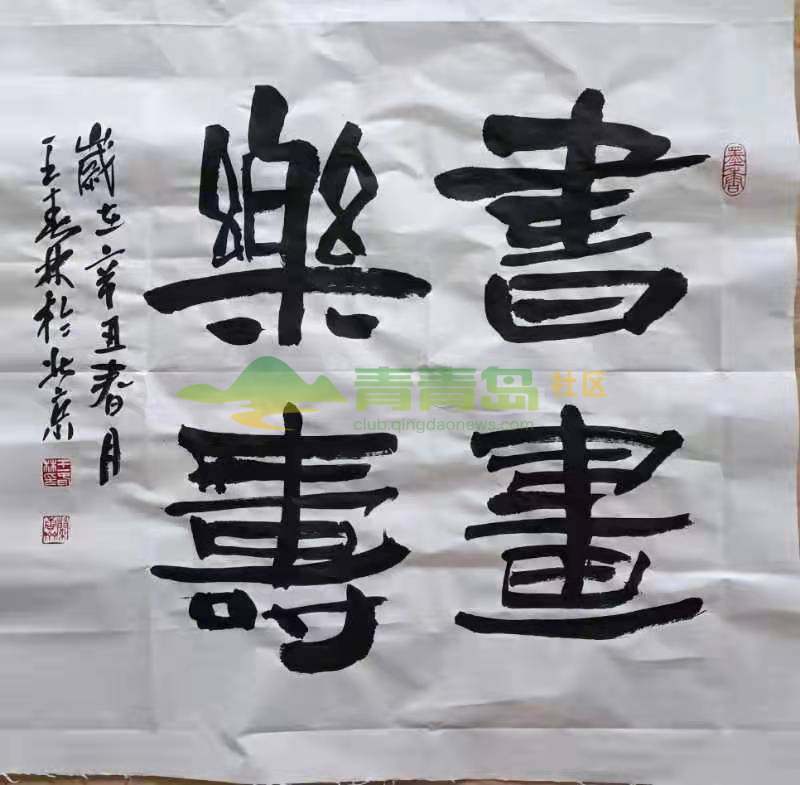 書畫
樂壽
歲在辛丑春月
王春林於北京
青青岛社区
club.qingdaonews.com